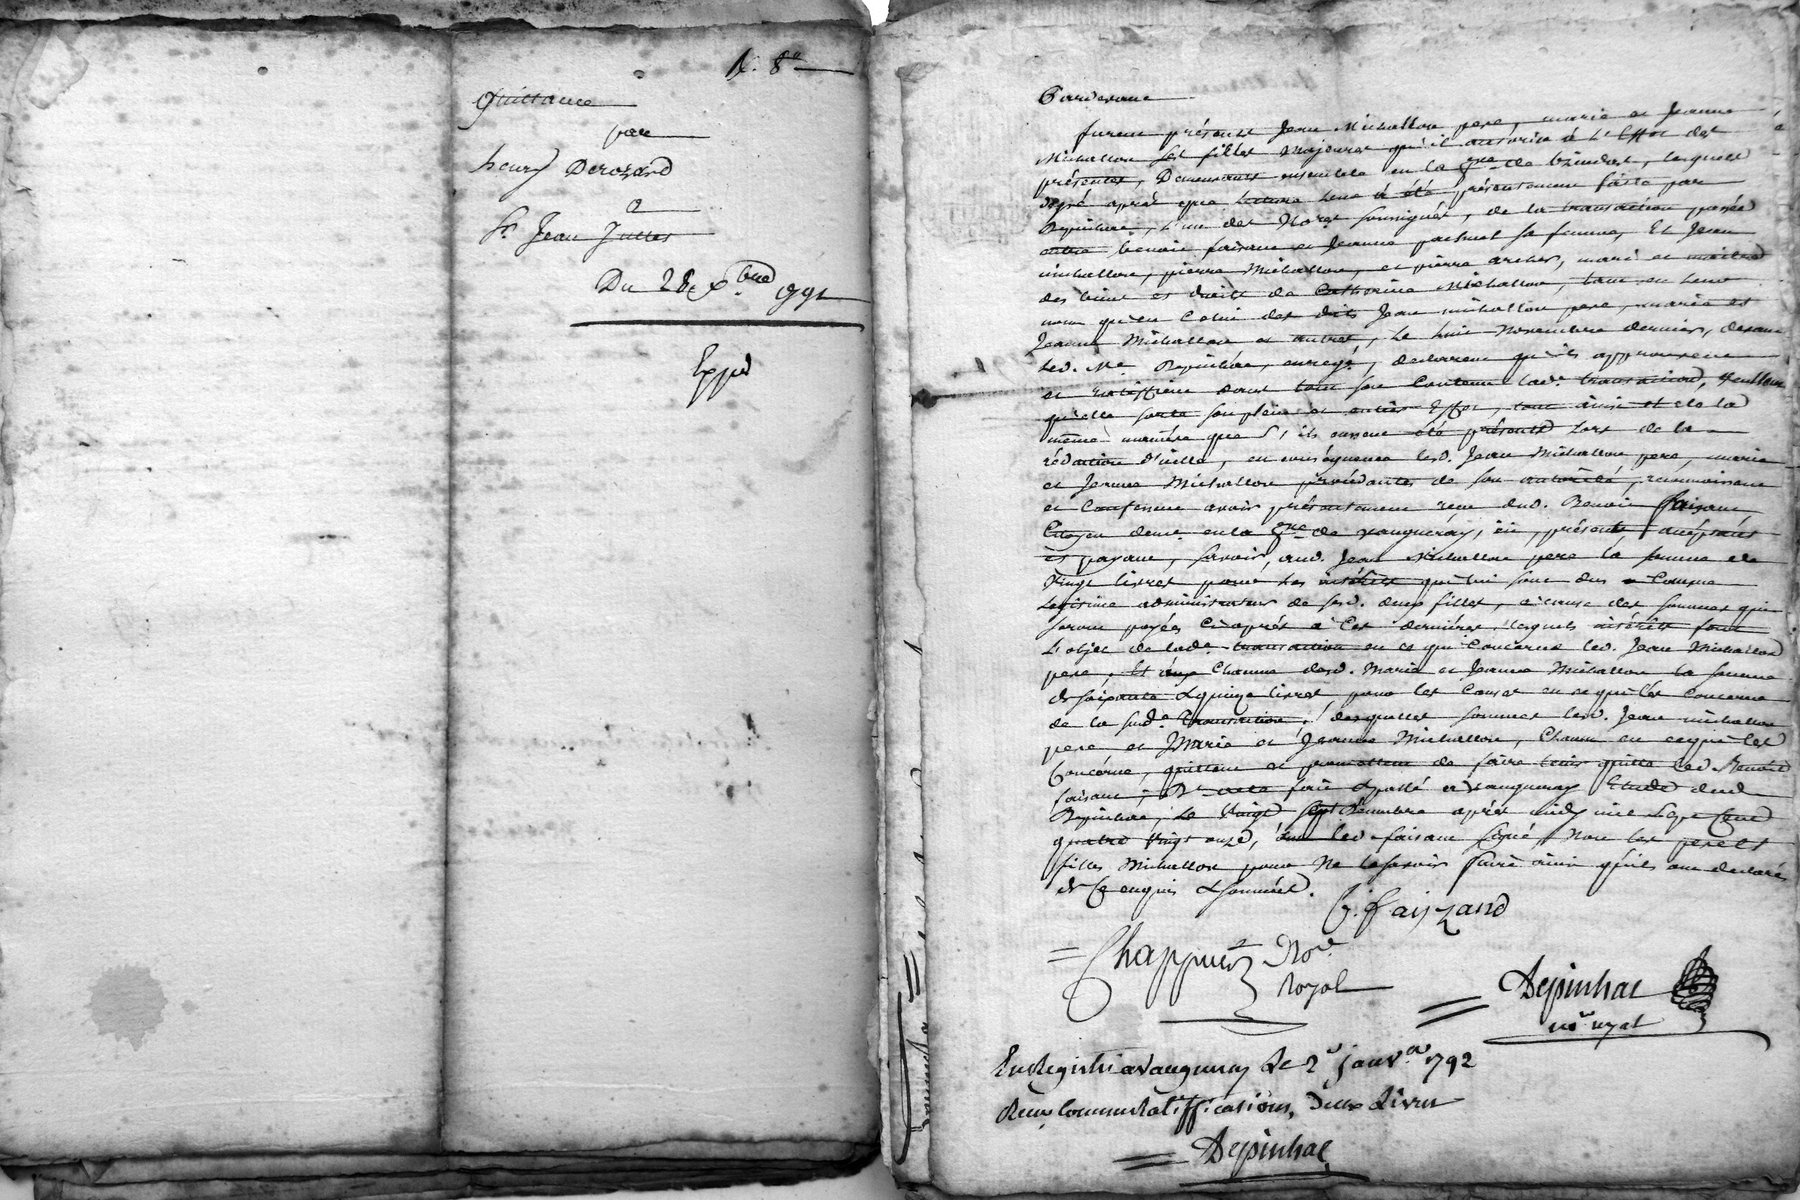 N. 8e
Quittance
par
henry Derozard
a
Sr. Jean Jullet
Du 28e xbre 1791
Expd
Pardevant
furent présents Jean Michallon pere, marie et Jeanne
Michallon ses filles majeures qu'il autorise à l'effet des
présentes, Demeurants ensemble en la de lesquels
après que lecture leur à été présentement faite par
Depinhac, l'un des Nores soussignés, de la transaction passée
entre benoit faisant et Jeanne sa femme, Et Jean
michallon, pierre Michallon, et pierre archer, mari et maitre
des biens et droits de Catherine Michallon, tant en leur
nom qu'en Celui des dits Jean michallon pere, marie et
Jeanne Michallon et autres, le huit Novembre dernier, devant
led. Me. Depinhac, enregé, declarent qu'ils approuvent
et ratiffient dans tout son Contenu lade. transaction, veullent
qu'elle sorte son plein et entier Effet, tout ainsi et de la
même maniére que s'ils eussent été présents lors de la
rédaction d'icelle, en conséquence led. Jean Michallon pere, marie
et Jeanne Michallon procédantes de son autorité, reconnoissent
et Confessent avoir présentement reçu dud. Benoit faisant
Citoyen demt. en la de vaugneray, ici, présent, acceptant
et payant, savoir, aud. Jean Michallon pere la somme de
Vingt livres pour les intérêts qui lui sont dus Comme
Legitime administrateur de sesd. deux filles, à cause des sommes qui
seront payées Ci après à Ces derniéres, lesquels intérêts font
L'objet de lade. transaction en ce qui Concerne led. Jean Michallon
pere, Et à Chacune desd. Marie et Jeanne Michallon la somme
de soixante & quinze livres pour les Causes en ce qui les Concerne
de la sude. transaction, desquelles sommes led. Jean michallon
pere et Marie et Jeanne Michallon, Chacun en ce qui les
Concerne, quittent et promettent de faire tenir quitte led. Benoit
faisant; fait & passé à vaugneray Etude dud.
Depinhac, Le Vingt sept Décembre après midy mil sept Cent
quatre Vingt onze, led. faisant signé, Non les pere et
filles Michallon pour Ne le savoir faire ainsi qu'ils ont declaré
de Ce enquis & sommés.
B. faizand
Chappuis Nore.
royal
Depinhac
nore. royal
Enregistré à vaugneray le 2e janv.er 1792
Reçu Comme Ratiffications, deux Livres
Depinhac